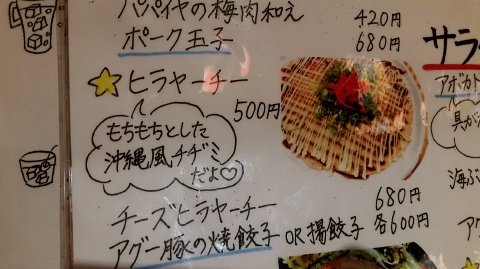 パパイヤの梅肉和え 420円
ポーク玉子 680円
ヒラヤーチー 500円
もちもちとした
沖縄風チヂミ
だよ♡
チーズヒラヤーチー 680円
アグー豚の焼餃子 OR 揚餃子 各600円
サラ
アボカト
具が
海ぶ